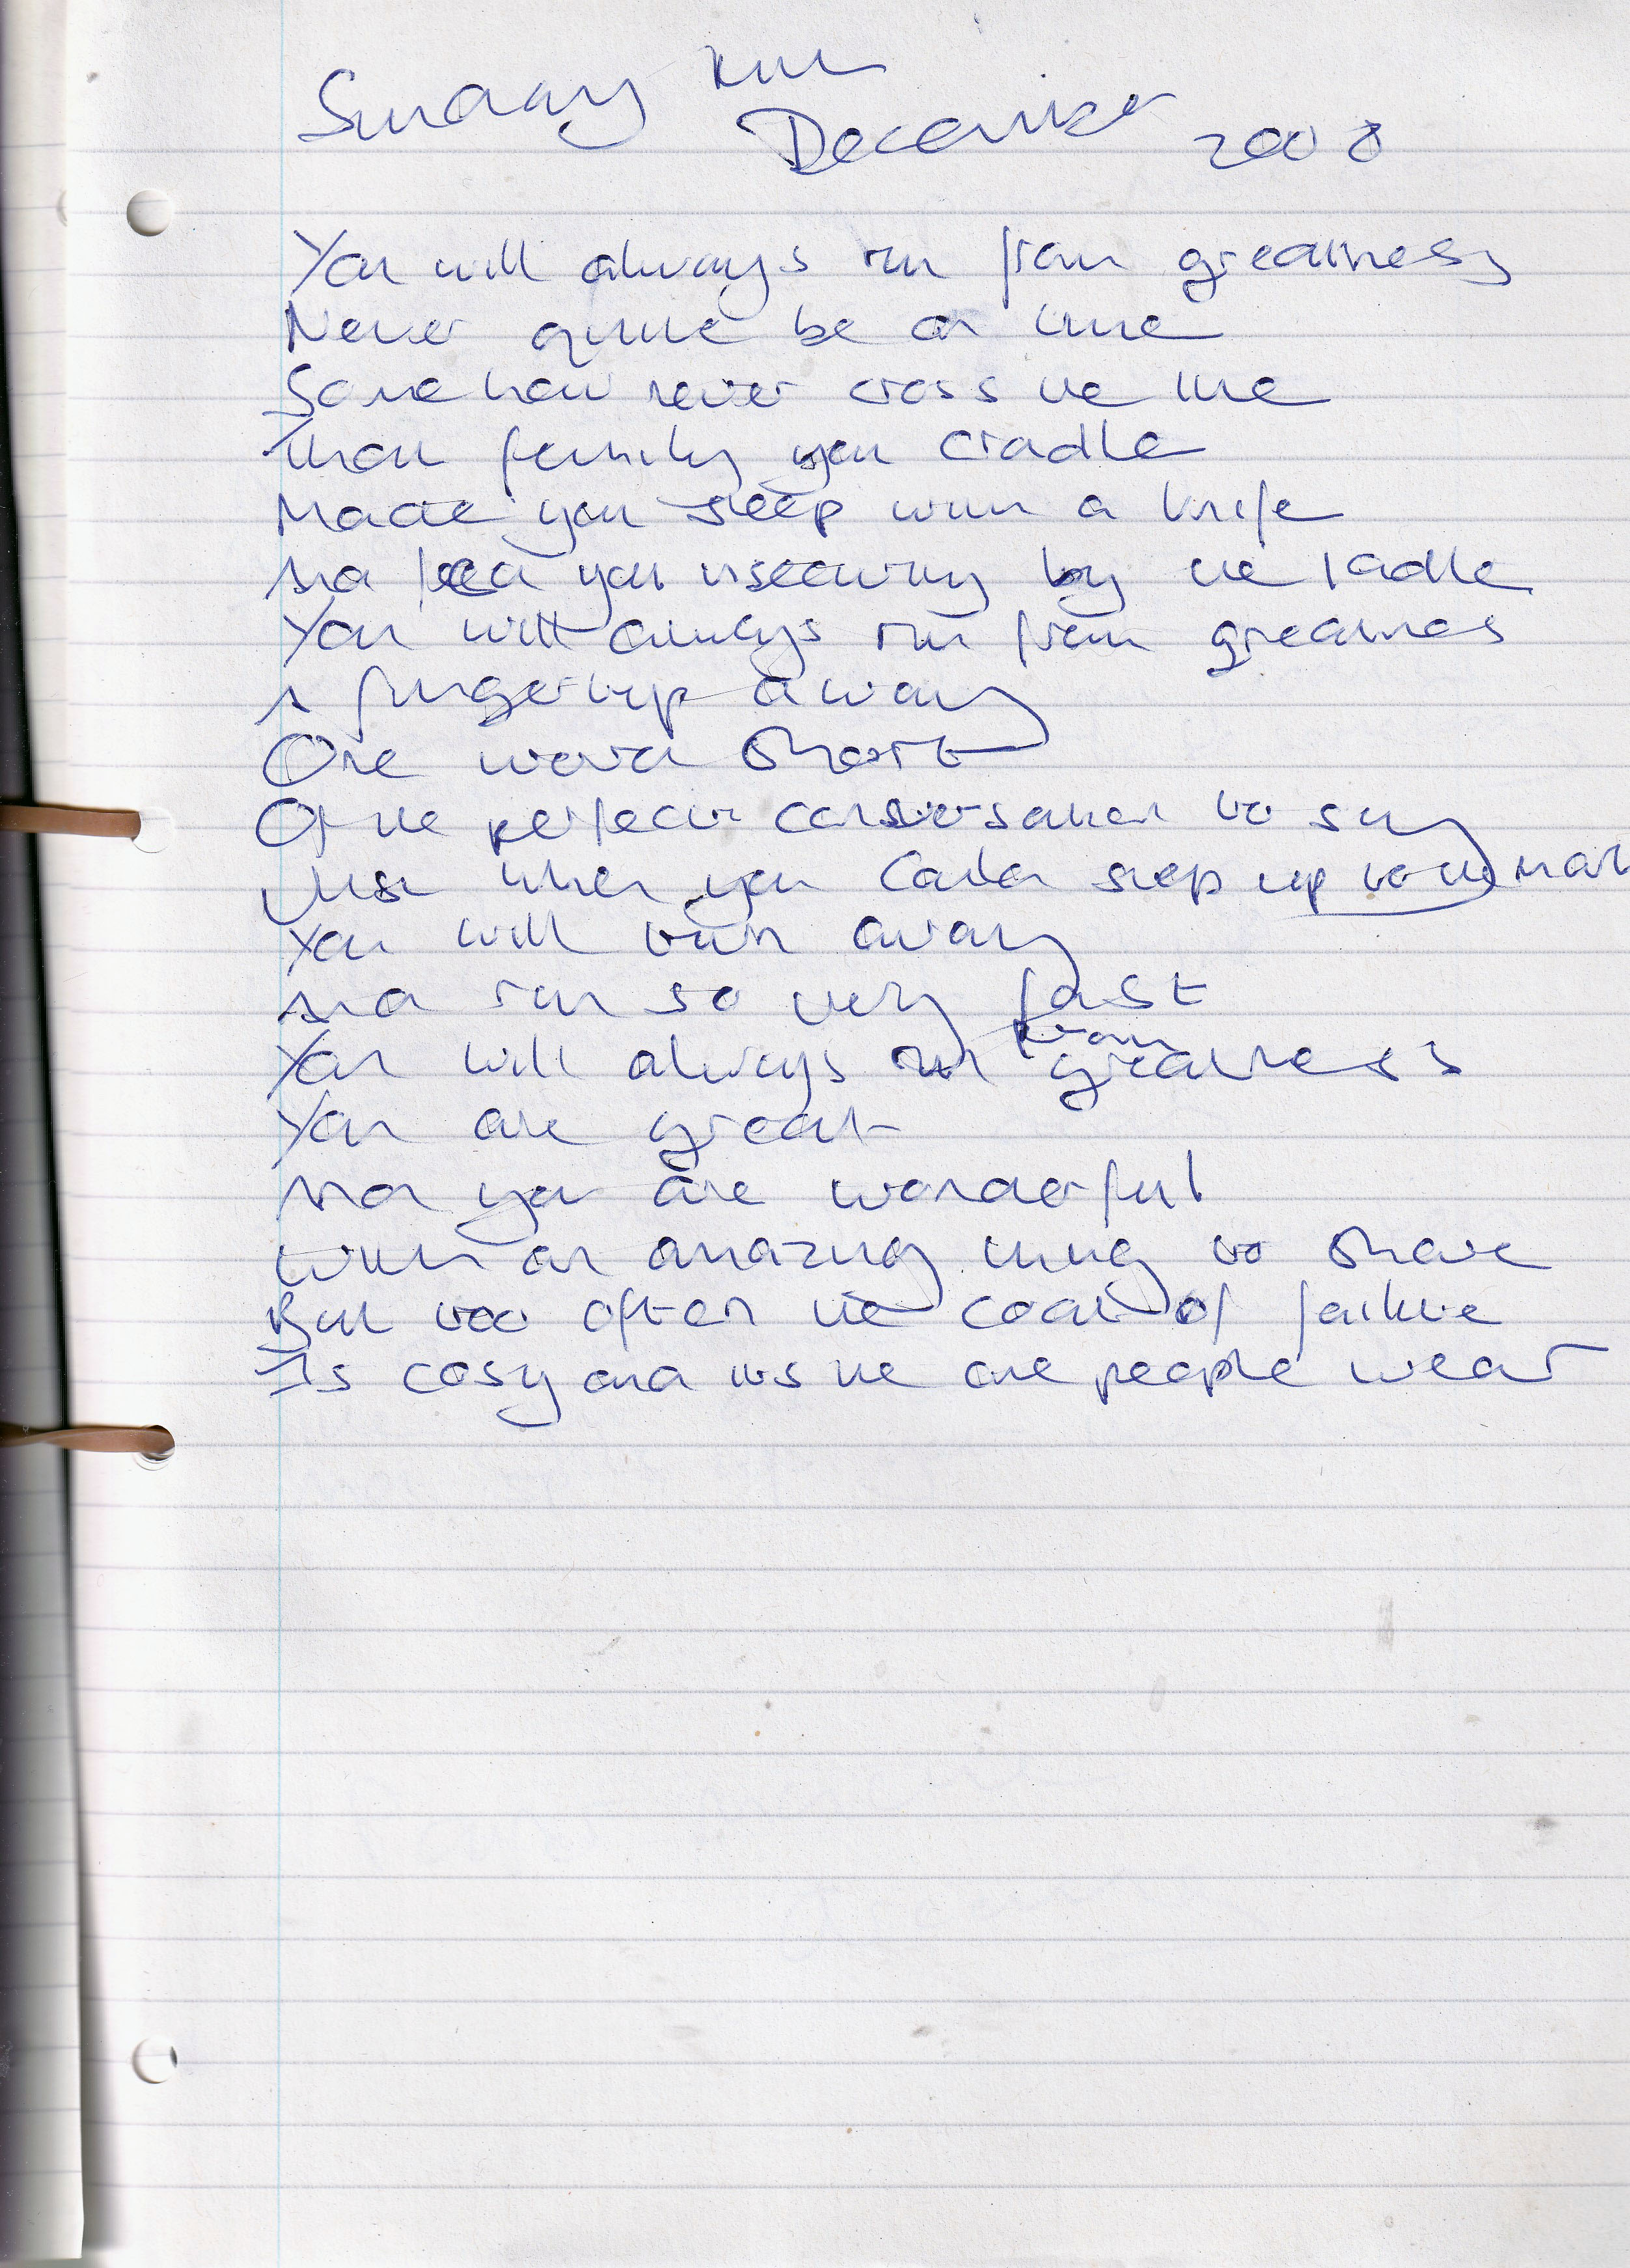 Sunday
December 2008
You will always run from greatness
Never quite be on time
Somehow never cross the line
That family you cradle
Made you sleep with a knife
And feed you insecurity by the ladle
You will always run from greatness
A fingertip away
One word short
Of the perfect conversation to say
Just when you could step up to the mark
You will turn away
And run so very fast
You will always run from greatness
You are great
And you are wonderful
With an amazing thing to share
But too often the coat of failure
Is cosy and its the one people wear